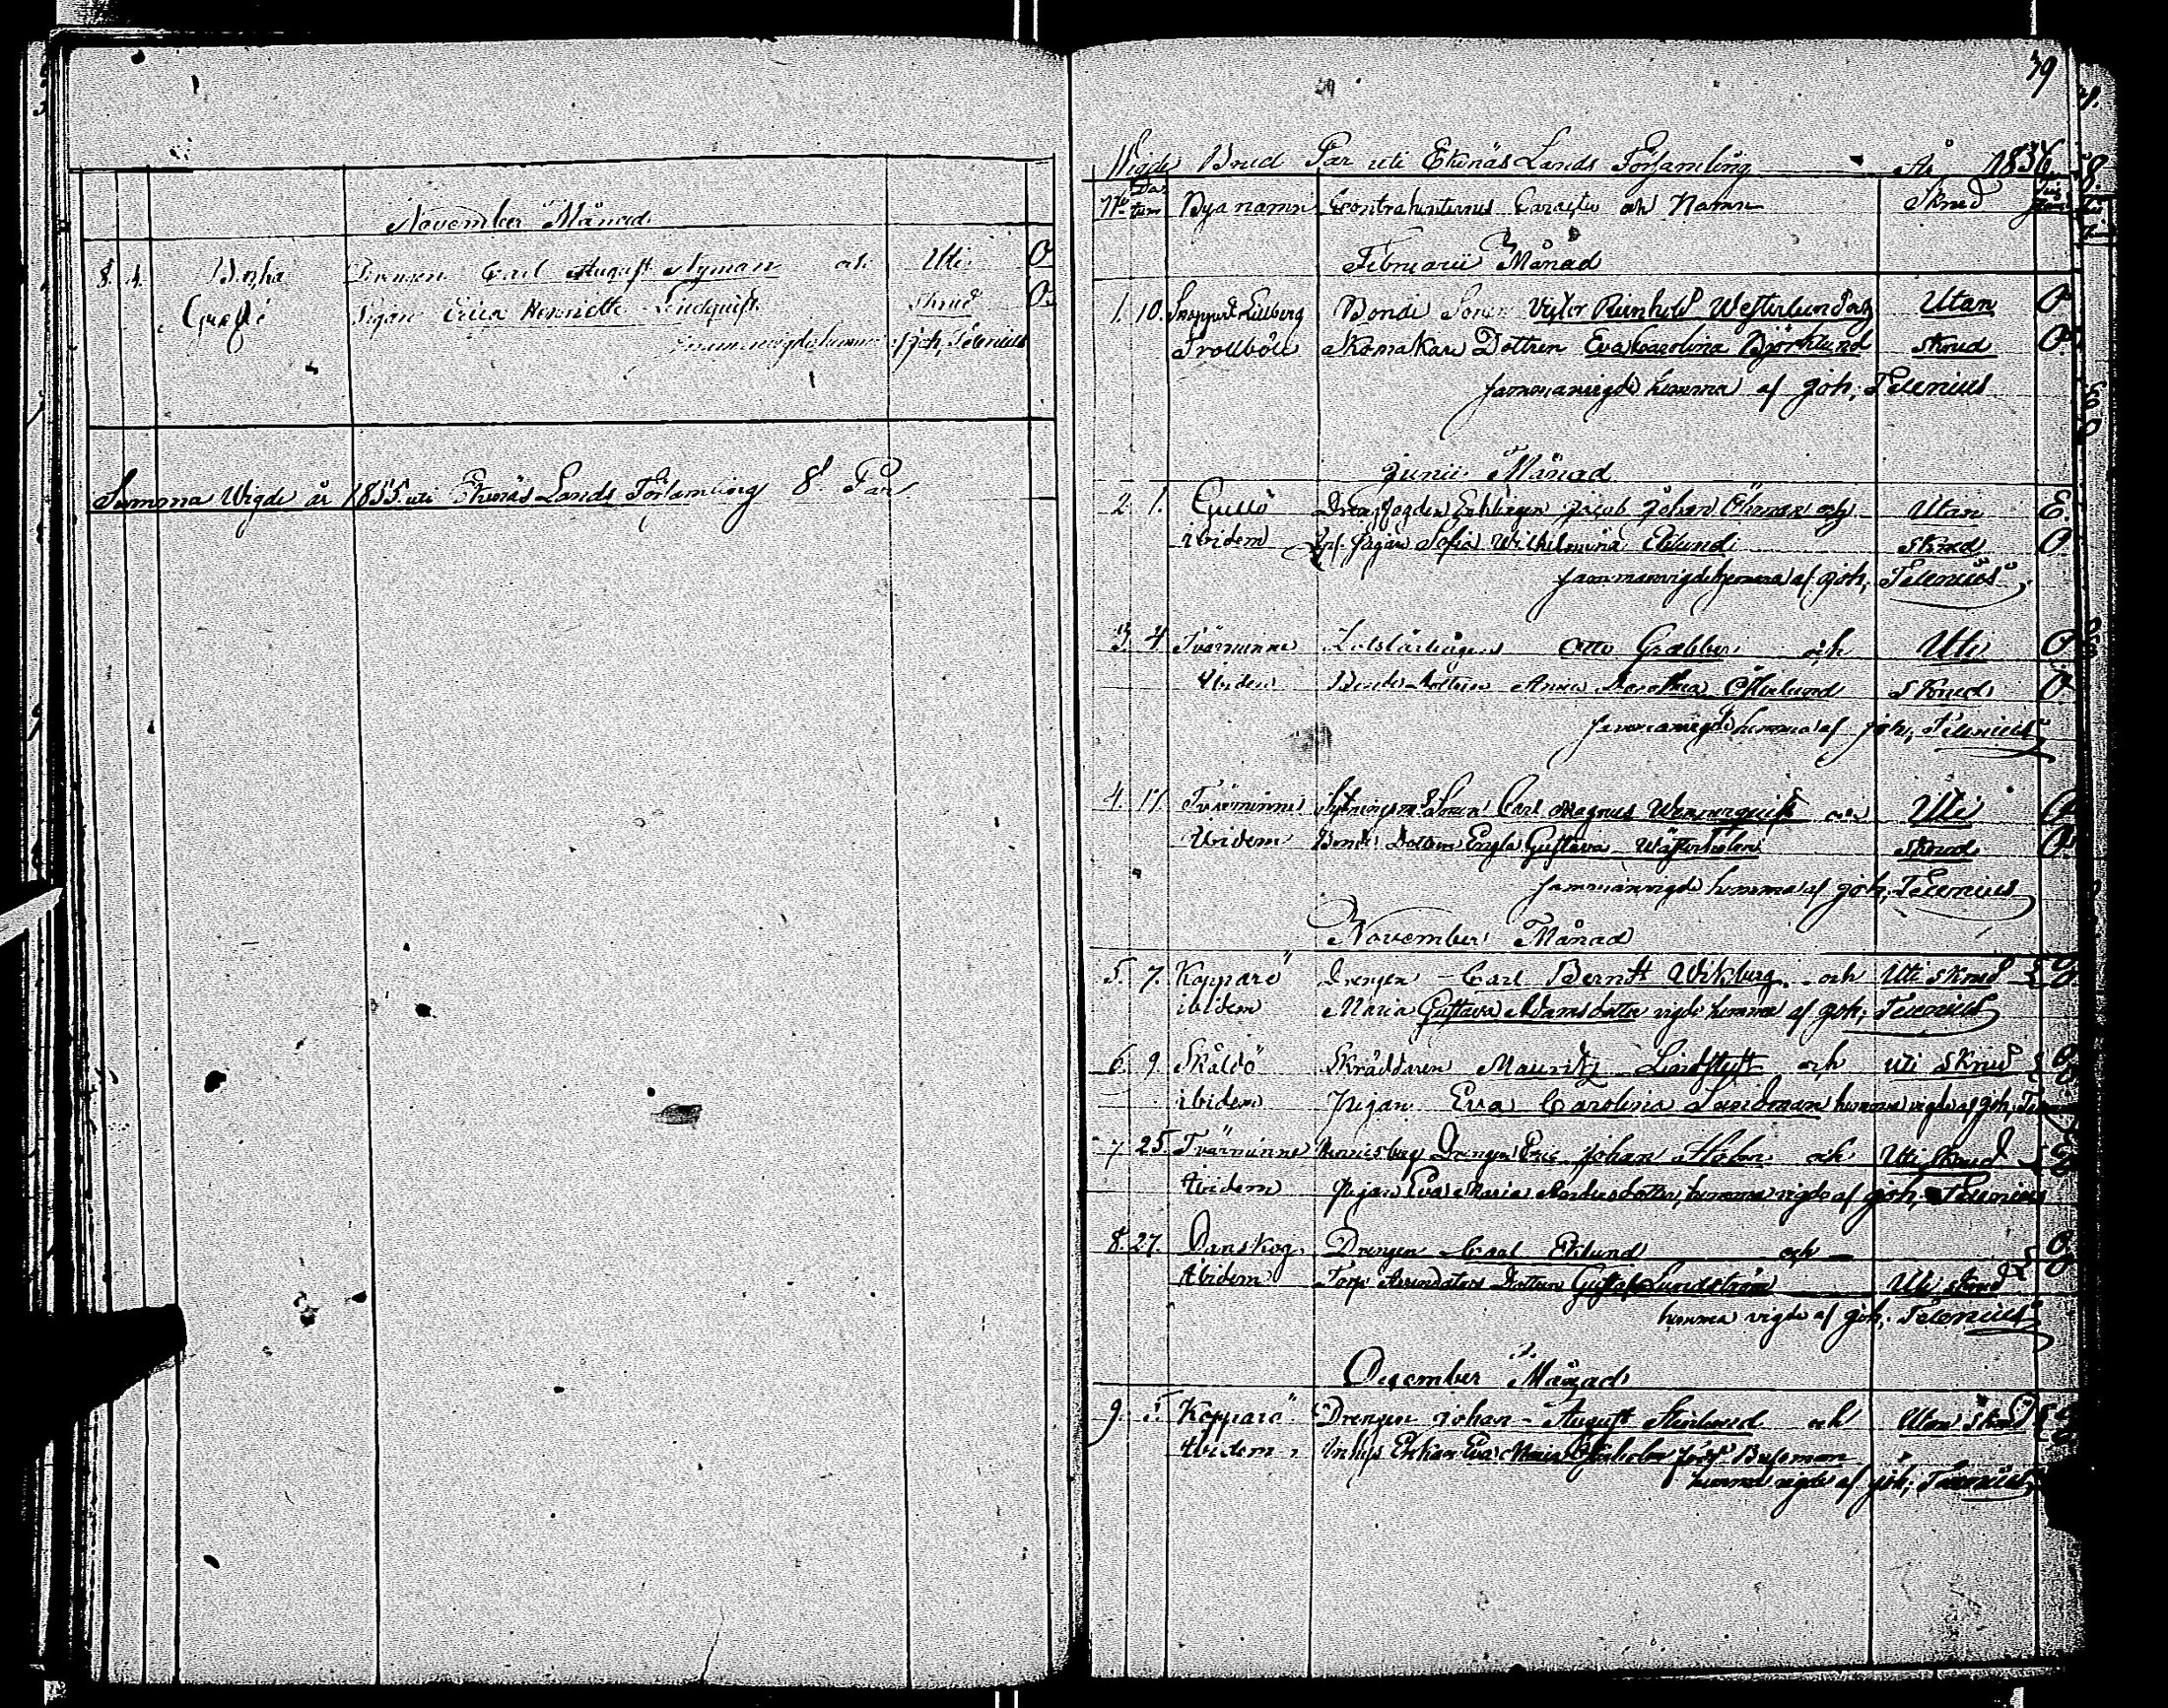 November Månad
8. 4. Carl August Nyman och Uti O
Grefsö Pigan Erica Henriette Lindquist Skrud O
sammanvigde hemma af Joh, Telenius
Summa Wigde år 1855 uti Ekenäs Lands Församling 8 Par
39
Wigde Brud Par uti Ekenäs Lands Församling År 1856
No Datum Bya namn Contrahenternes Caracter och Namn Skrud
Februarii Månad
1. 10. Bonde Sonen Victor Reinhold Westerlund och Utan O
Trollböle Skomakare Dottren Eva Carolina Björklund Skrud O
sammanvigde hemma af Joh, Telenius
Junii Månad
2 1. Gullö Enklingen Jacob Johan Öhman och Utan E.
ibidem Pigan Sofia Wilhelmina Eklund Skrud O
sammanvigde hemma af Joh, Telenius
3 4 Tvärminne Lotslärlingen Otto Grabber och Uti O
Ibidem Bonde Dottren Anna Dorothea Österlund Skrud O
sammanvigde hemma af Joh, Telenius
4. 17. Tvärminne Sonen Carl Magnus Wennerquist och Uti O
Ibidem Bonde Dottren Engla Gustava Westerholm Skrud O
sammanvigde hemma af Joh, Telenius
November Månad
5. 7. Kopparö Drengen Carl Berndt Wikberg och Uti Skrud O
ibidem Maria Gustava Adamsdotter vigde hemma af Joh, Telenius O
6. 9. Skåldö Skräddaren Mauritz Lindstedt och uti Skrud O
ibidem Pigan Eva Carolina Sandman hemma vigde af Joh.
7 25. Tvärminne Drengen Eric Johan Holm och Uti Skrud
Ibidem Pigan Eva Maria Andersdotter, hemma vigde af Joh, Telenius
8. 27. Danskog Drengen Carl Eklund och
Ibidem Torp Arrendators Dottren Gustafva Lundström Uti Skrud
hemma vigde af Joh, Telenius
December Månad
9. 5. Kopparö Drengen Johan August Stenlund och Utan Skrud
Ibidem Inhys Enkan Eva Maria Österholm född Bussman
hemma vigde af Joh, Telenius